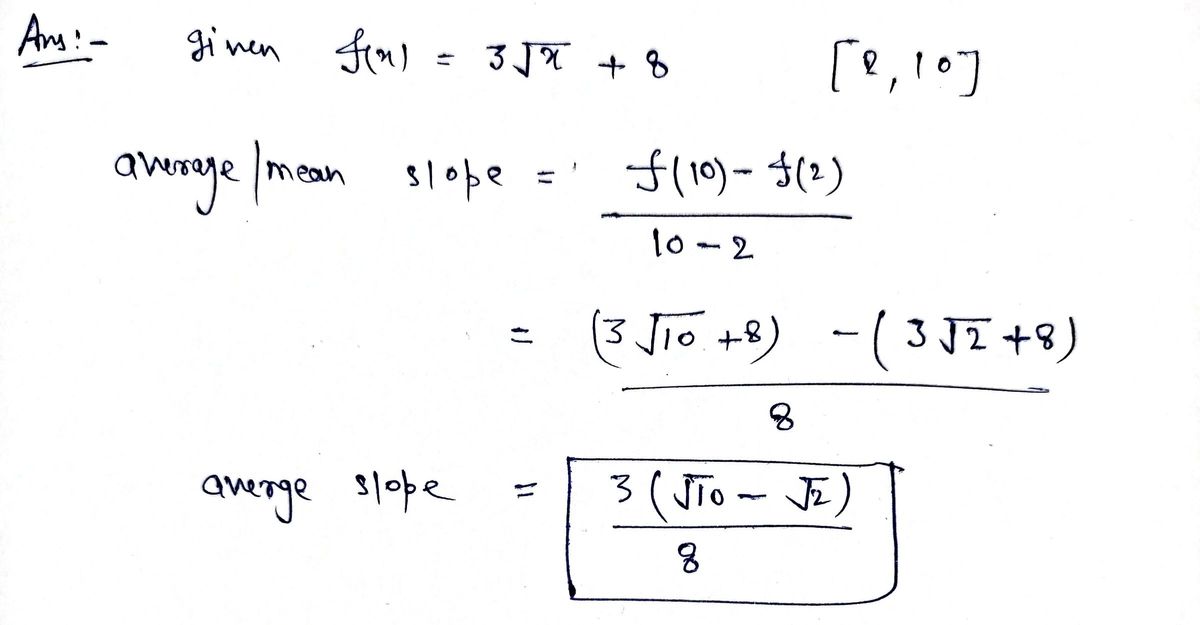 Ans:- given f(x) = 3√x + 8 [2, 10]
average/mean slope = f(10) - f(2)
10 - 2
= (3√10 + 8) - (3√2 + 8)
8
averge slope = 3(√10 - √2)
8